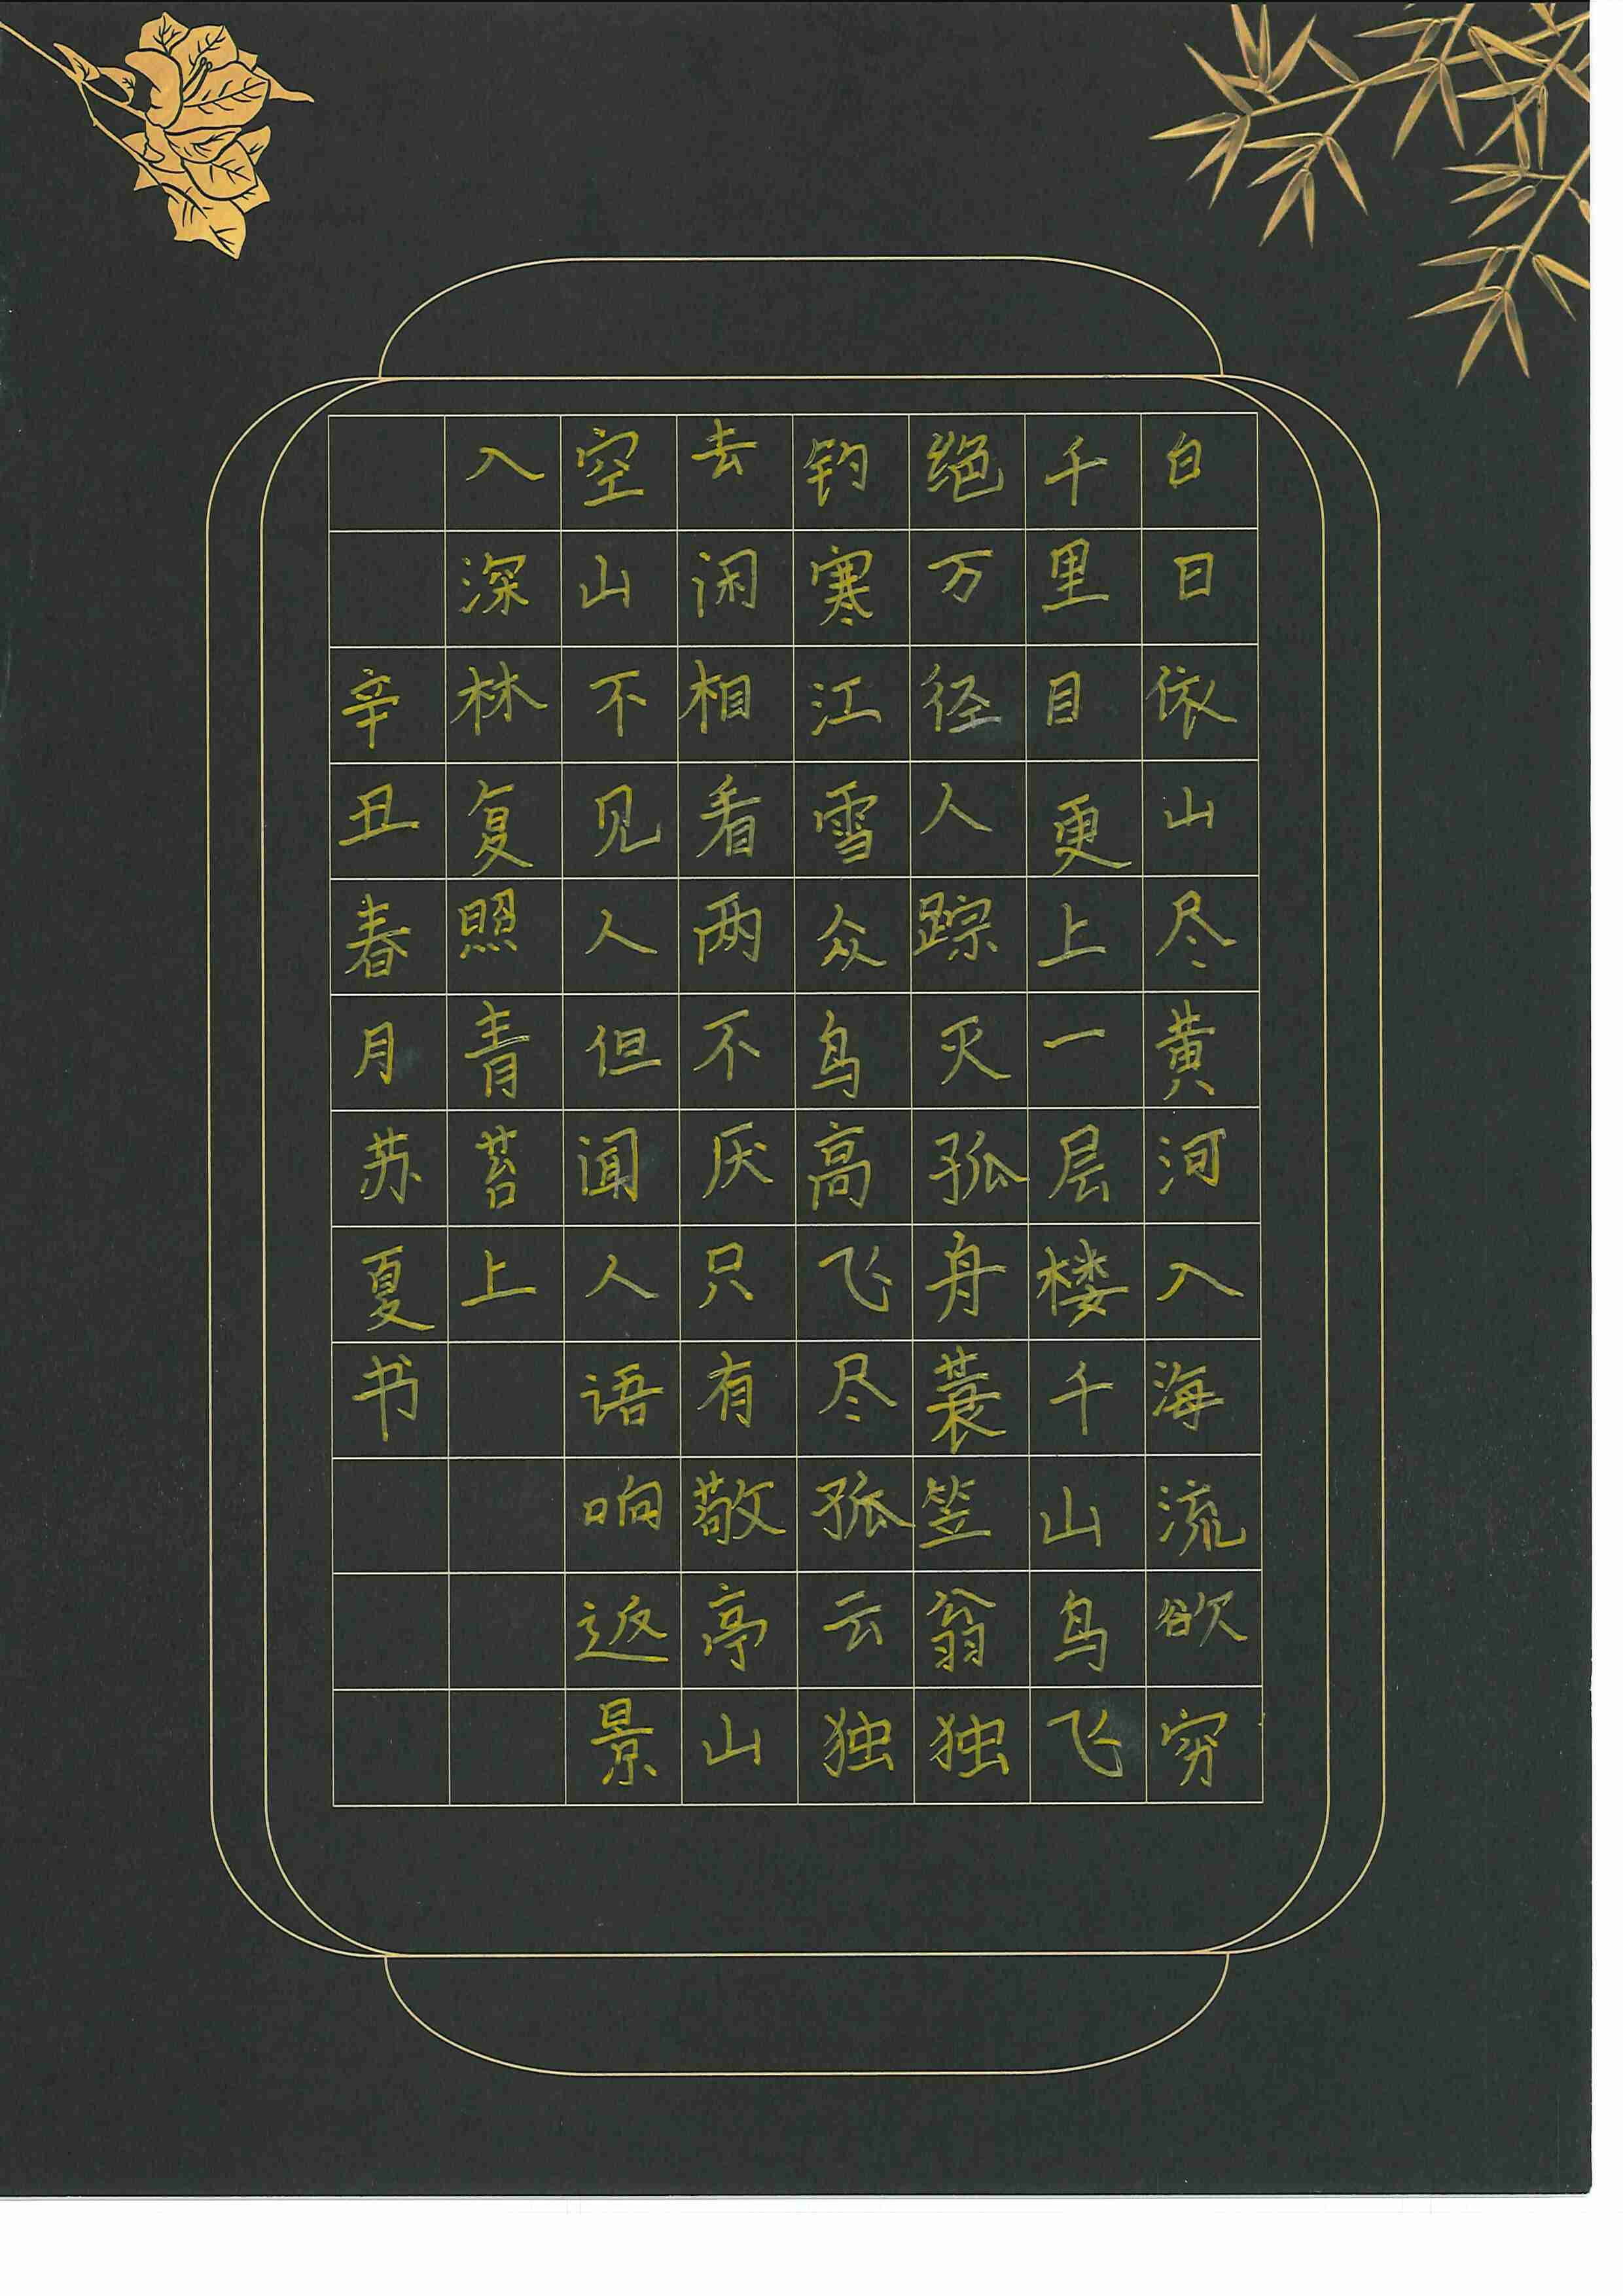 白日依山尽黄河入海流欲穷
千里目更上一层楼千山鸟飞
绝万径人踪灭孤舟蓑笠翁独
钓寒江雪众鸟高飞尽孤云独
去闲相看两不厌只有敬亭山
空山不见人但闻人语响返景
入深林复照青苔上
辛丑春月苏夏书